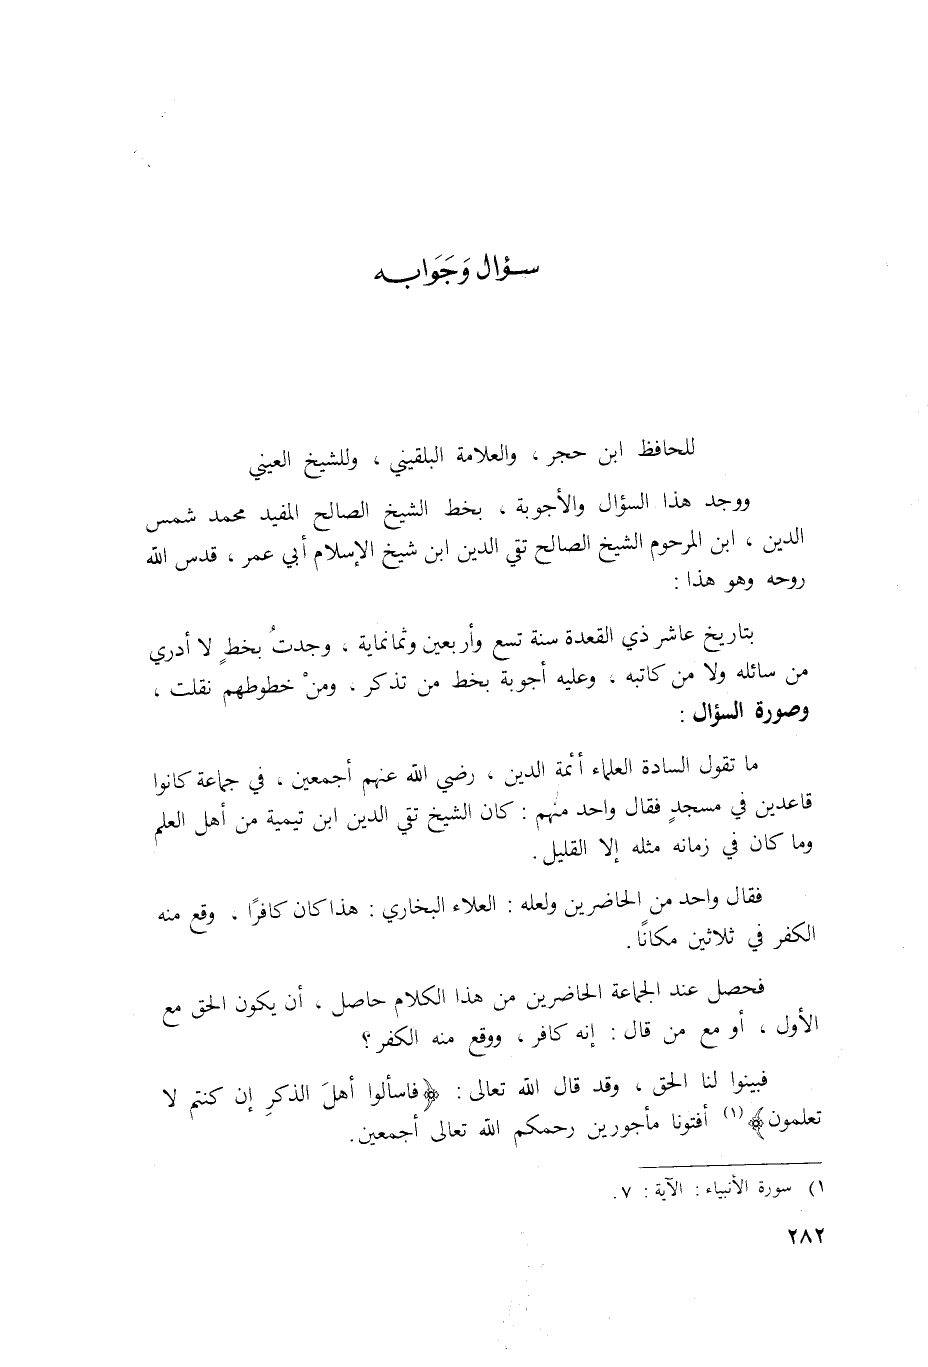 سؤال وَجَوَابه
للحافظ ابن حجر ، والعلامة البلقيني ، وللشيخ العيني
ووجد هذا السؤال والأجوبة ، بخط الشيخ الصالح المفيد محمد شمس
الدين ، ابن المرحوم الشيخ الصالح تقي الدين ابن شيخ الإسلام أبي عمر ، قدس الله
روحه وهو هذا :
بتاريخ عاشر ذي القعدة سنة تسع وأربعين وثمانماية ، وجدتُ بخطٍ لا أدري
من سائله ولا من كاتبه ، وعليه أجوبة بخط من تذكر ، ومنْ خطوطهم نقلت ،
وصورة السؤال :
ما تقول السادة العلماء أئمة الدين ، رضي الله عنهم أجمعين ، في جماعة كانوا
قاعدين في مسجدٍ فقال واحد منهم : كان الشيخ تقي الدين ابن تيمية من أهل العلم
وما كان في زمانه مثله إلا القليل .
فقال واحد من الحاضرين ولعله : العلاء البخاري : هذا كان كافرًا ، وقع منه
الكفر في ثلاثين مكانًا .
فحصل عند الجماعة الحاضرين من هذا الكلام حاصل ، أن يكون الحق مع
الأول ، أو مع من قال : إنه كافر ، ووقع منه الكفر ؟
فبينوا لنا الحق ، وقد قال الله تعالى : ﴿فاسألوا أهلَ الذكرِ إن كنتم لا
تعلمون﴾(١) أفتونا مأجورين رحمكم الله تعالى أجمعين .
١) سورة الأنبياء : الآية : ٧ .
٢٨٢